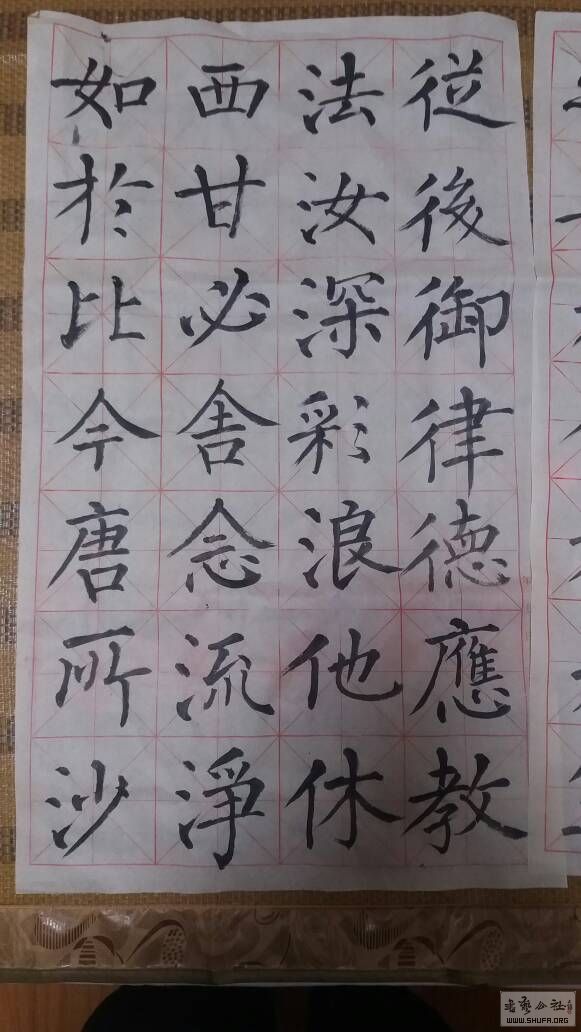 従後御律德應教
法汝深彩浪他休
西甘必舍念流淨
如於比今唐所沙
书艺公社
WWW.SHUFA.ORG